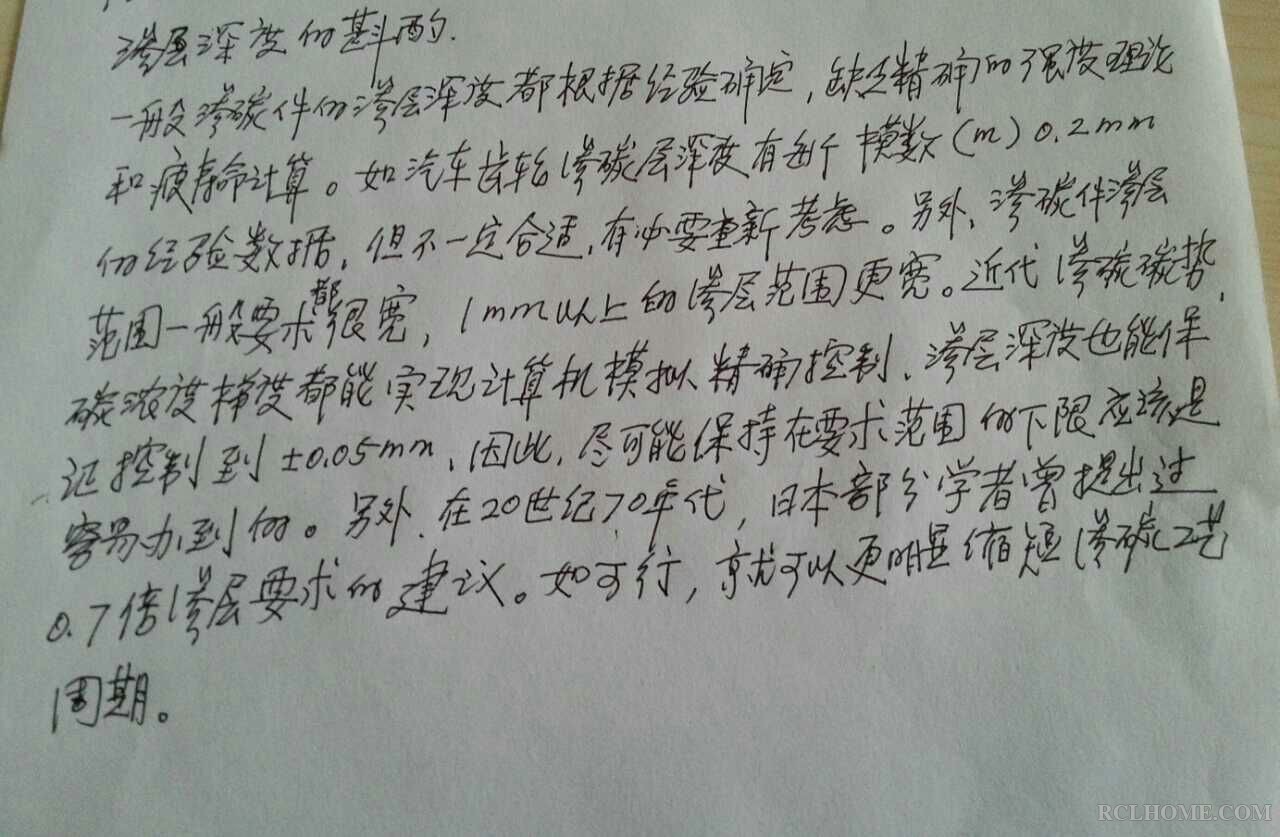 渗层深度的斟酌.
一般渗碳件的渗层深度都根据经验确定,缺乏精确的强度理论
和疲寿命计算。如汽车齿轮渗碳层深度有每个模数(m)0.2mm
的经验数据,但不一定合适,有必要重新考虑。另外、渗碳件渗层
范围一般要求都很宽,1mm以上的渗层范围更宽。近代渗碳碳势、
碳浓度梯度都能实现计算机模拟精确控制、渗层深度也能保
证控制到±0.05mm、因此,尽可能保持在要求范围的下限应该是
容易办到的。另外、在20世纪70年代,日本部分学者曾提出过
0.7倍渗层要求的建议。如可行,就可以更明显缩短渗碳工艺
周期。
RCLHOME.COM